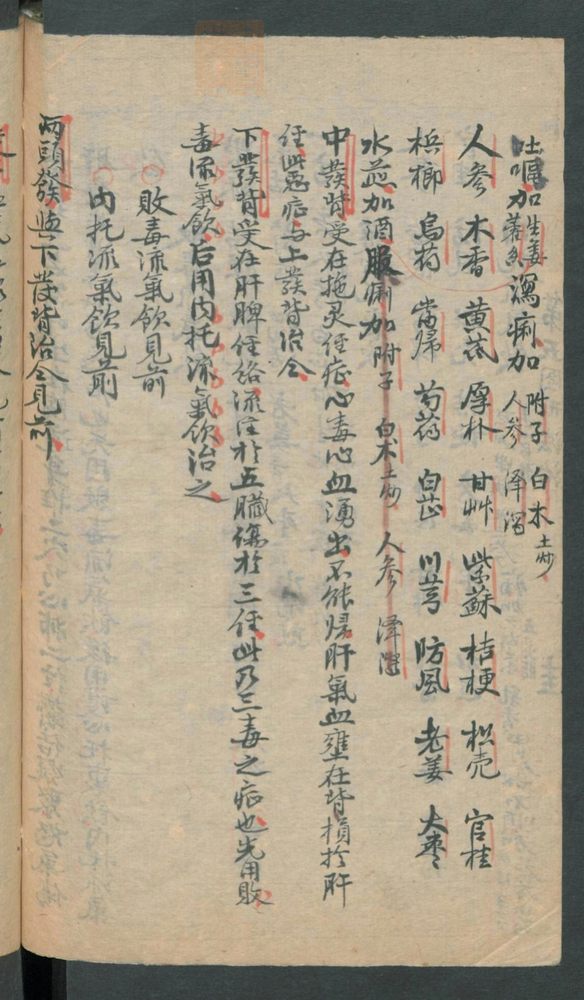 吐嘔加生姜藿香瀉痢加附子人參白术土炒澤瀉
人參 木香 黄芪 厚朴 甘艸 紫蘇 桔梗 枳壳 官桂
梹榔 烏葯 當歸 芍葯 白芷 川芎 防風 老姜 大棗
水煎加酒服痢加附子 白术土炒 人參 澤瀉
中發背受在拖灵任症心毒心血湧出不能歸肝氣血壅在背損於肝
任此惡症与上發背治仝
下發背受在肝脾任絡流注於五臟傷於三任此乃三毒之症也先用敗
毒流氣飲后用内托流氣飲治之
敗毒流氣飲見前
内托流氣飲見前
兩頭發與下發背治仝見前